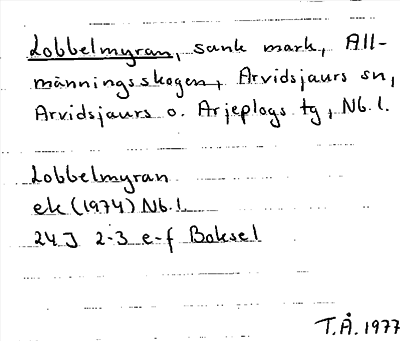 Lobbelmyran, sank mark, All-
männingsskogen, Arvidsjaurs sn,
Arvidsjaurs o. Arjeplogs tg, Nb. l.
Lobbelmyran
ek (1974) Nb. l.
24 J 2-3 e-f Boksel
T.Å. 1977